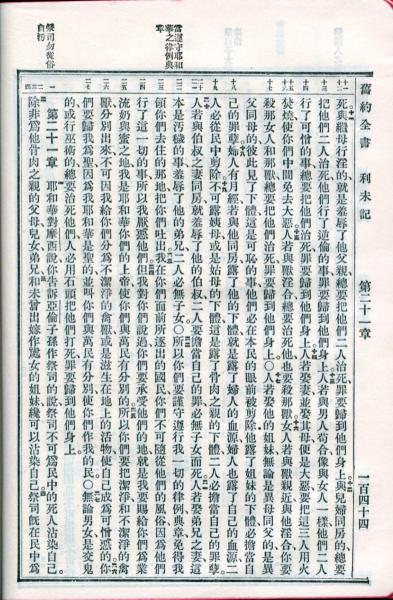 舊約全書 利未記 第二十一章 一百四十四
死與繼母行淫的就是羞辱了他父親總要把他們二人治死罪要歸到他們身上與兒婦同房的總要
把他們二人治死他們行了逆倫的事罪要歸到他們身上人若與男人苟合像與女人一樣他們二人
行了可憎的事總要把他們治死罪要歸到他們身上人若娶妻並娶其母便是大惡要把這三人用火
焚燒使你們中間免去大惡人若與獸淫合總要治死他也要殺那獸女人若與獸親近與他淫合你要
殺那女人和那獸總要把他們治死罪要歸到他們身上〇人若娶他的姐妹無論是異母同父的是異
父同母的彼此見了下體這是可恥的事他們必在本民的眼前被剪除他露了姐妹的下體必擔當自
己的罪孽婦人有月經若與他同房露了他的下體就是露了婦人的血源婦人也露了自己的血源二
人必從民中剪除不可露姨母或是姑母的下體這是露了骨肉之親的下體二人必擔當自己的罪孽
人若與伯叔之妻同房就羞辱了他的伯叔二人要擔當自己的罪必無子女而死人若娶弟兄之妻這
本是汚穢的事羞辱了他的弟兄二人必無子女〇所以你們要謹守遵行我一切的律例典章免得我
當遵守耶和華之律例典章
領你們去住的那地把你們吐出我在你們面前所逐出的國民你們不可隨從他們的風俗因爲他們
行了這一切的事所以我厭惡他們但我對你們說過你們要承受他們的地就是我要賜給你們爲業
流奶與蜜之地我是耶和華你們的上帝使你們與萬民有分別的所以你們要把潔淨和不潔淨的禽
獸分別出來不可因我給你們分爲不潔淨的禽獸或是滋生在地上的活物使自己成爲可憎惡的你
們要歸我爲聖因爲我耶和華是聖的並叫你們與萬民有分別使你們作我的民〇無論男女是交鬼
的或行巫術的總要治死他們人必用石頭把他們打死罪要歸到他們身上
第二十一章 耶和華對摩西說你告訴亞倫子孫作祭司的說祭司不可爲民中的死人沾染自己
祭司勿從俗自污
除非爲他骨肉之親的父母兒女弟兄和未曾出嫁作處女的姐妹纔可以沾染自己祭司既在民中爲